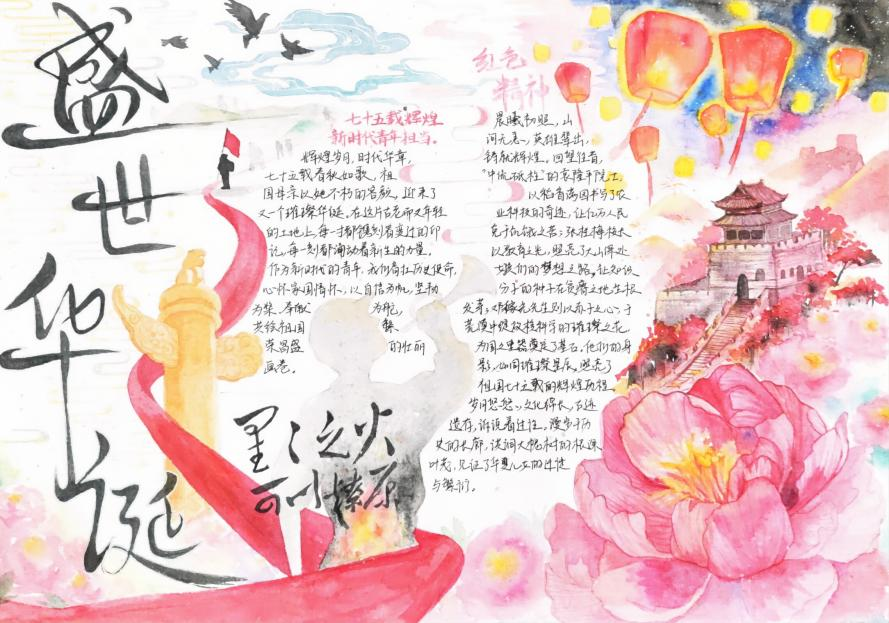 盛世华诞
七十五载辉煌
新时代青年担当。
辉煌岁月,时代华章,
七十五载春秋如歌,祖
国母亲以她不朽的容颜,迎来了
又一个璀璨华诞。在这片古老而又年轻
的土地上,每一寸都镌刻着奋进的印
记,每一刻都涌动着新生的力量。
作为新时代的青年,我们肩扛历史使命,
心怀家国情怀,以自信为帆,坚韧
为桨,奉献为舵,
共绘祖国繁
荣昌盛的壮丽
画卷。
星星之火
可以燎原
红色
精神
晨曦初照,山
河无恙,英雄辈出,
铸就辉煌。回望往昔,
"中流砥柱"的袁隆平院士,
以稻香满园书写了农
业科技的奇迹,让亿万人民
免于饥饿之苦;张桂梅校长
以教育之光,照亮了大山深处
女孩们的梦想之路,让知识
分子的种子在贫瘠之地生根
发芽;邓稼先先生则以赤子之心,于
荒漠中绽放核科学的璀璨之花,
为国之重器奠定了基石。他们的身
影,如同璀璨星辰,照亮了
祖国七十五载的辉煌历程。
岁月悠悠,文化得长,古迹
遗存,诉说着过往。漫步于历
史的长廊,洪洞大槐树的根深
叶茂,见证了华夏儿女的迁徙
与繁衍。